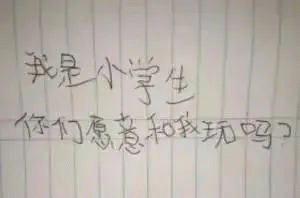 我是小学生
你们愿意和我玩吗?